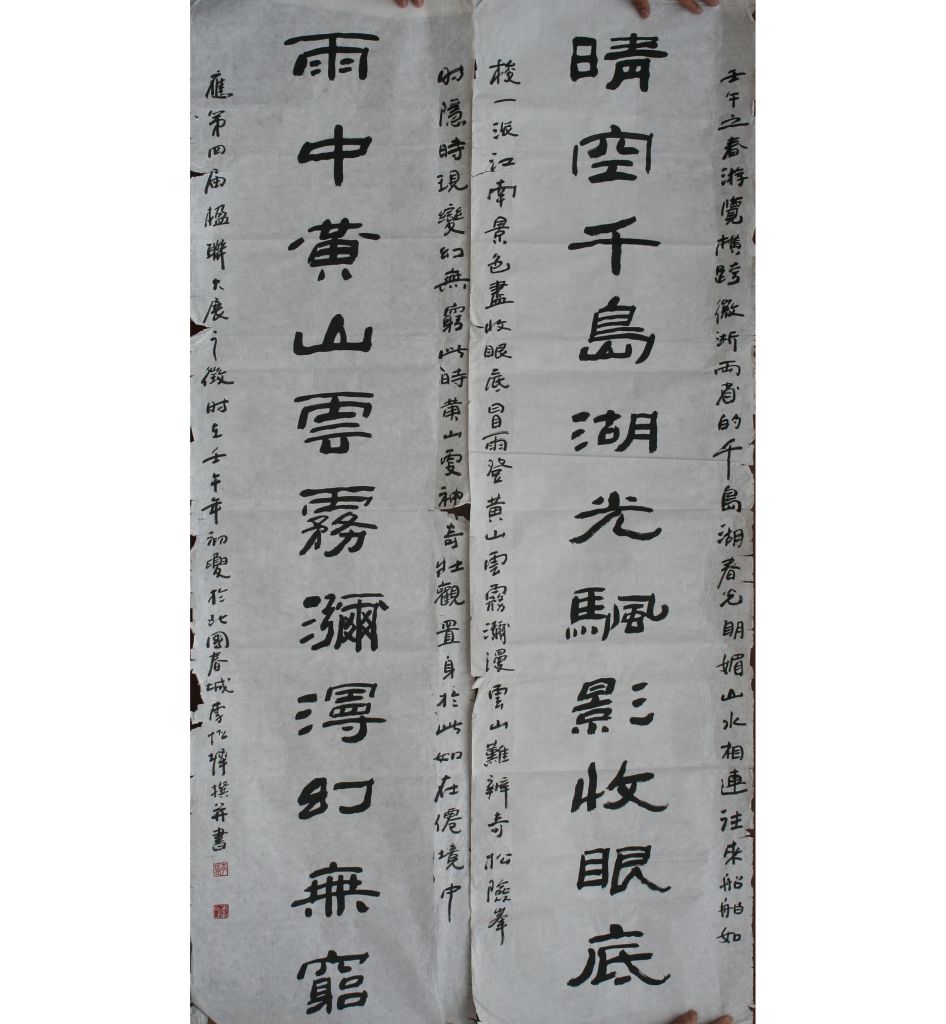 壬午之春游覽橫跨徽浙两省的千島湖春光明媚山水相連往来船舶如
晴空千島湖光颿影收眼底
梭一派江南景色盡收眼底冒雨登黄山雲霧瀰漫雲山難辨奇松險峯
时隱時現變幻無窮此時黄山更神奇壯觀置身於此如在僊境中
雨中黃山雲霧瀰漫幻無窮
應第四届楹聯大展之徵时在壬午年初夏於北國春城李撰并書